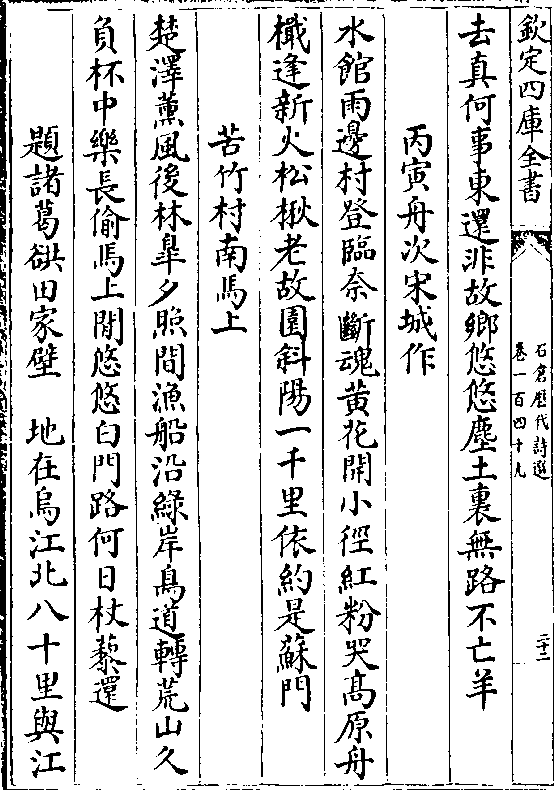 欽定四庫全書
石倉歷代詩選
卷一百四十九
二十二
去真何事東還非故鄉悠悠塵土裏無路不亡羊
丙寅舟次宋城作
水館雨邊村登臨奈斷魂黄花開小徑紅粉哭髙原舟
檝逢新火松楸老故園斜陽一千里依約是蘇門
苦竹村南馬上
楚澤薰風後林臯夕照間漁船沿綠岸鳥道轉荒山久
負杯中樂長偷馬上閒悠悠白門路何日杖藜還
題諸葛谼田家壁　地在烏江北八十里與江